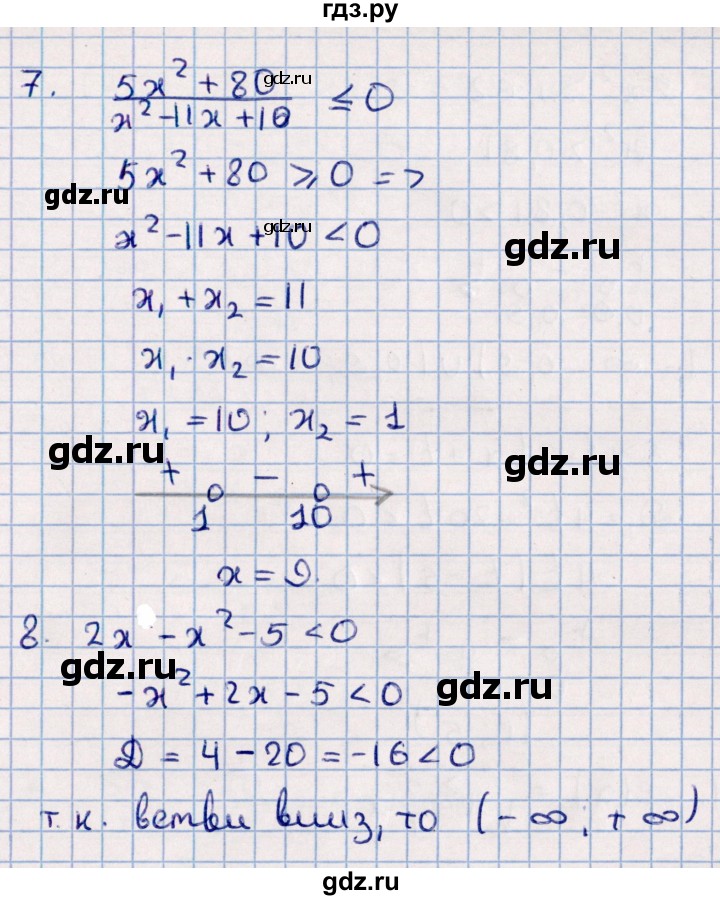 гдз.ру
7. (5x² + 80)/(x² - 11x + 10) ≤ 0
gdz.ru
5x² + 80 ⩾ 0 =>
gdz.ru
x² - 11x + 10 < 0
gdz.ru
gdz.ru
x₁ + x₂ = 11
x₁ · x₂ = 10
x₁ = 10; x₂ = 1
gdz.ru
gdz.ru
+ - +
1 10
x = 9.
8. 2x - x² - 5 < 0
gdz.ru
-x² + 2x - 5 < 0
gdz.ru
Д = 4 - 20 = -16 < 0
т.к. ветви вниз, то (-∞; +∞)
gdz.ru